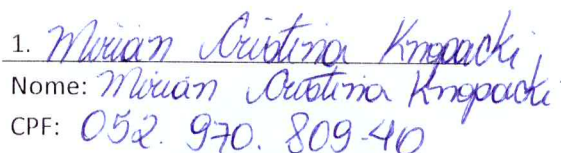 1. Mirian Cristina Knopacki
Nome: Mirian Cristina Knopacki
CPF: 052.970.809-40